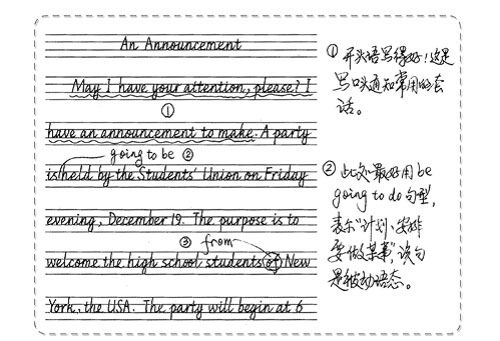 An Announcement
May I have your attention, please? I
①
have an announcement to make. A party
going to be ②
is held by the Students' Union on Friday
evening, December 19. The purpose is to
③ from
welcome the high school students of New
York, the USA. The party will begin at 6
① 开头语写得好!这是
写口头通知常用的套
话。
② 此处最好用be
going to do句型,
表示"计划、安排
要做某事"该句
是被动语态。